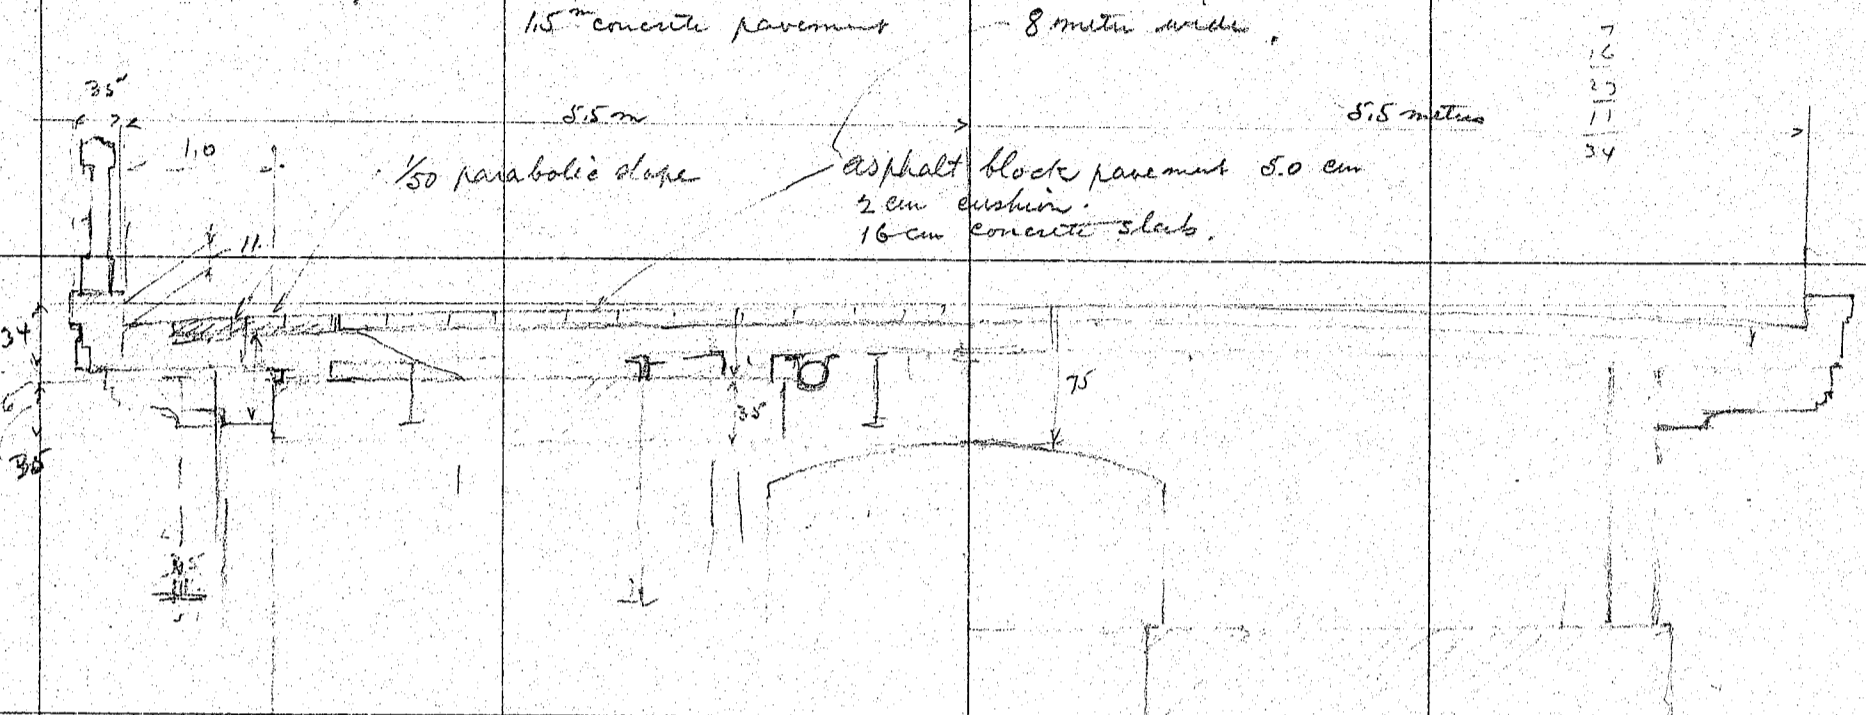 1.5 m concrete pavement - 8 metre wide.
35
5.5 m
5.5 metres
7
16
23
11
34
1.0
1/50 parabolic slope
asphalt block pavement 5.0 cm
2 cm cushion.
16 cm concrete slab.
11
34
6
35
35
75